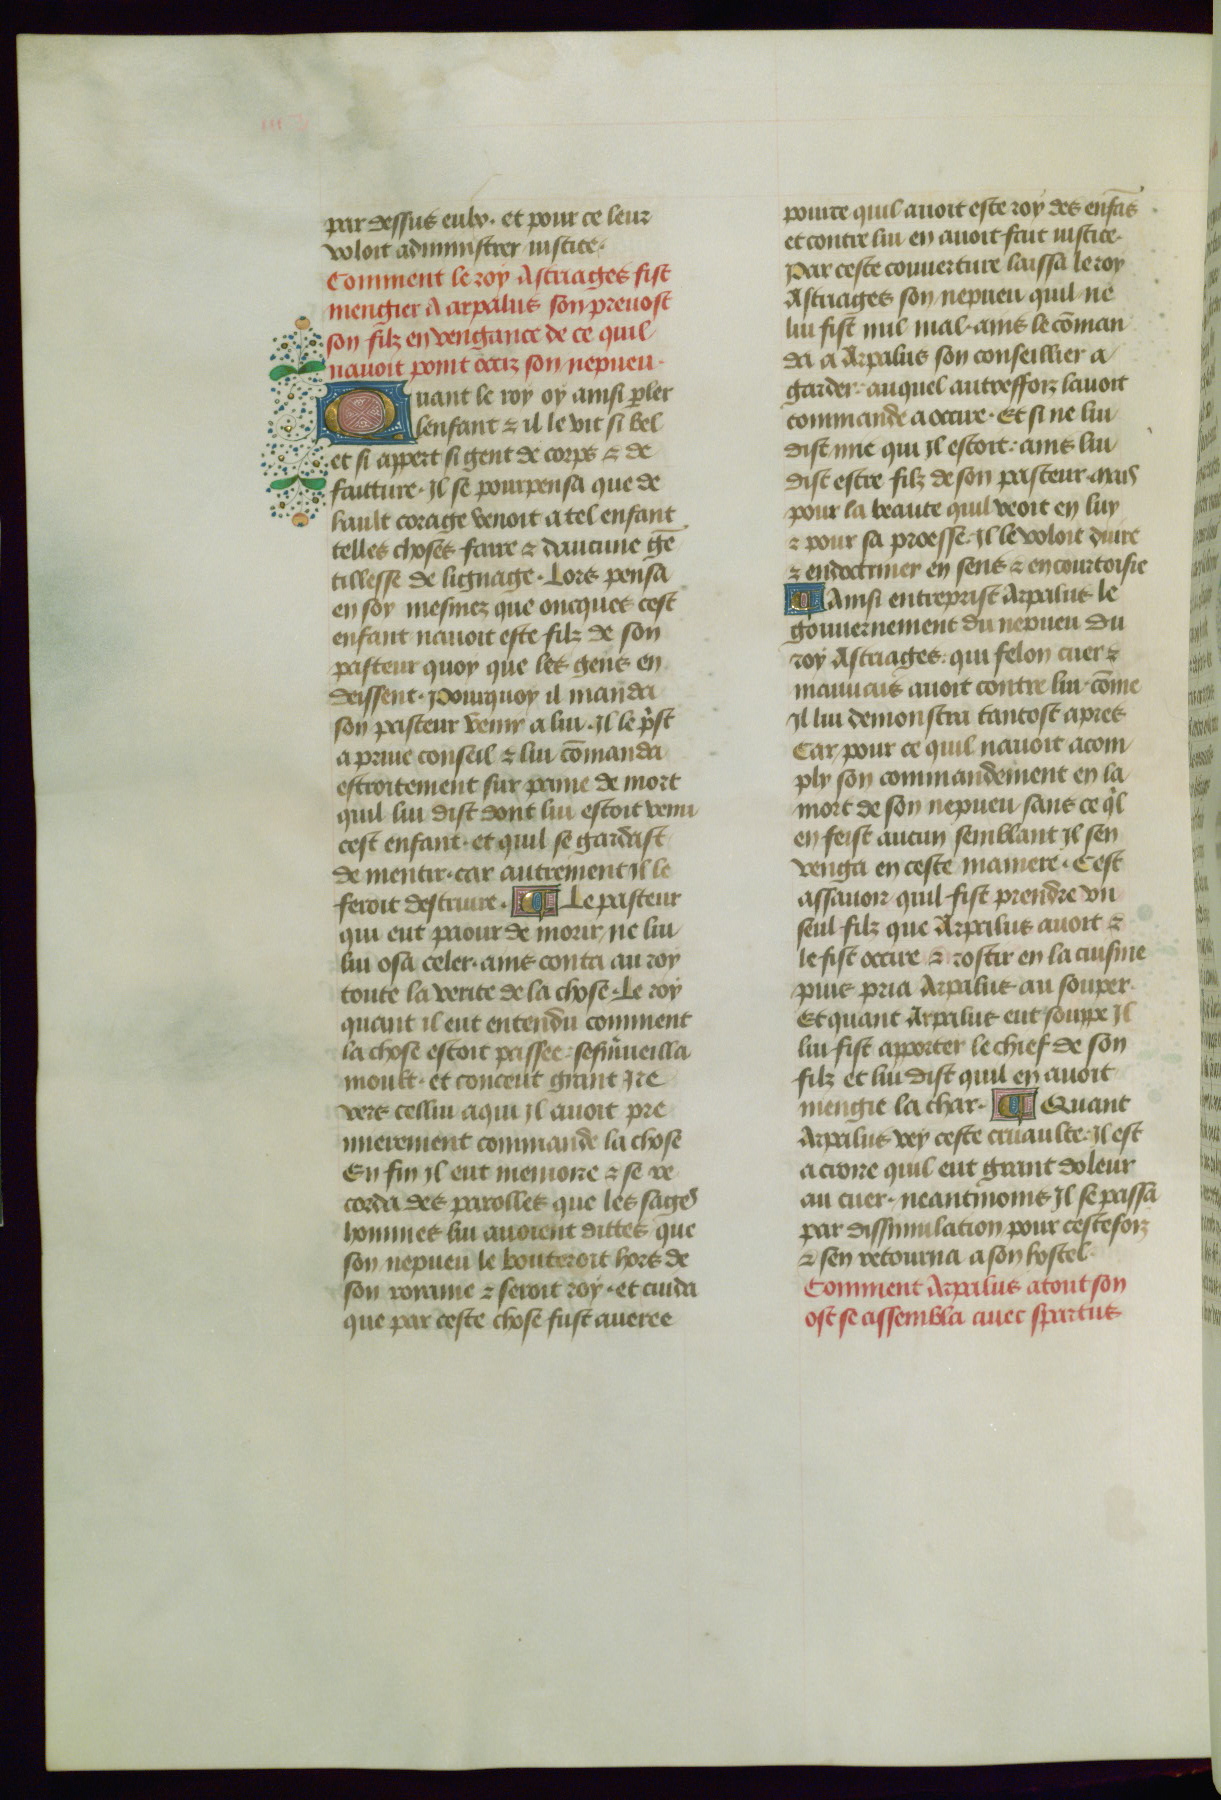 par dessus eulx. et pour ce leur
voloit administrer iustice.
Comment le roy Astriages fist
mengier a arpalus son preuost
son filz en vengance de ce quil
nauoit point occiz son nepueu.
Quant le roy oy ainsi p̱ler
lenfant ⁊ il le vit si bel
et si appert si gent de corps ⁊ de
faitture. Il se pourpensa que de
hault corage venoit a tel enfant
telles choses faire ⁊ daucune gē
tillesse de lignage. Lors pensa
en soy mesmez que oncques cest
enfant nauoit este filz de son
pasteur quoy que les gens en
deissent. Pourquoy il manda
son pasteur venir a lui. Il le p̾st
a priue conseil ⁊ lui cōmanda
estroitement sur paine de mort
quil lui dist dont lui estoit venu
cest enfant. et quil se gardast
de mentir. car autrement Il le
feroit destruire. ¶ Le pasteur
qui eut paour de morir ne lui
lui osa celer. ains conta au roy
toute la verite de la chose. Le roy
quant il eut entendu comment
la chose estoit passee. sesm̾ueilla
moult. et conceut grant Ire
vers cellui a qui Il auoit pre
mierement commande la chose
En fin Il eut memoire ⁊ se re
corda des parolles que les sages
hommes lui auoient dittes que
son nepueu le bouteroit hors de
son royame ⁊ seroit roy. et cuida
que par ceste chose fust aueree
pource quil auoit este roy des enfās
et contre lui en auoit fait iustice.
Par ceste couuerture laissa le roy
Astriages son nepueu quil ne
lui fist nul mal. ains le cōman
da a Arpalus son conseillier a
garder. auquel autreffoiz lauoit
commande a occire. Et si ne lui
dist mie qui Il estoit. ains lui
dist estre filz de son pasteur. mais
pour la beaute quil veoit en luy
⁊ pour sa proesse. Il le voloit duire
⁊ endoctriner en sens ⁊ en courtoisie
¶ Ainsi entreprist Arpalus le
gouuernement du nepueu du
roy Astriages. qui felon cuer ⁊
mauuais auoit contre lui. cōme
Il lui demonstra tantost apres
Car pour ce quil nauoit acom
ply son commandement en la
mort de son nepueu sans ce q̾l
en feist aucun semblant Il sen
venga en ceste maniere. Cest
assauoir quil fist prendre vn
seul filz que Arpalus auoit ⁊
le fist occire ⁊ rostir en la cuisine
puis pria Arpalus au souper.
Et quant Arpalus eut souppe Il
lui fist apporter le chief de son
filz et lui dist quil en auoit
mengie la char. ¶ Quant
Arpalus vey ceste cruaulte. Il est
a croire quil eut grant doleur
au cuer. neantmoins Il se passa
par dissimulation pour ceste foiz
⁊ sen retourna a son hostel.
Comment Arpalus a tout son
ost se assembla auec spartus